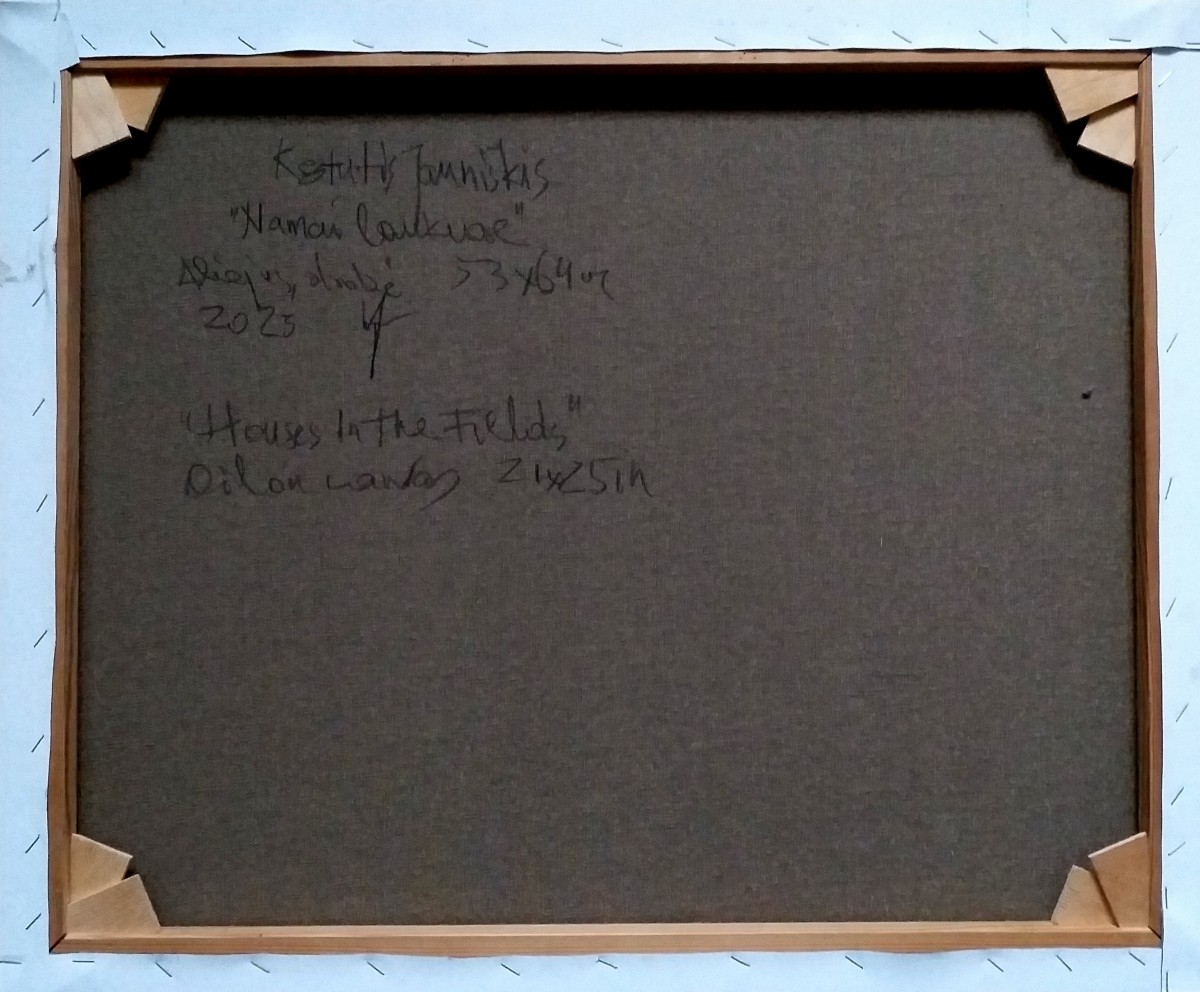 Kęstutis Jauniškis
"Namai laukuose"
Aliejus, drobė 53x64 cm
2025
"Houses In the Fields"
Oil on canvas 21x25in